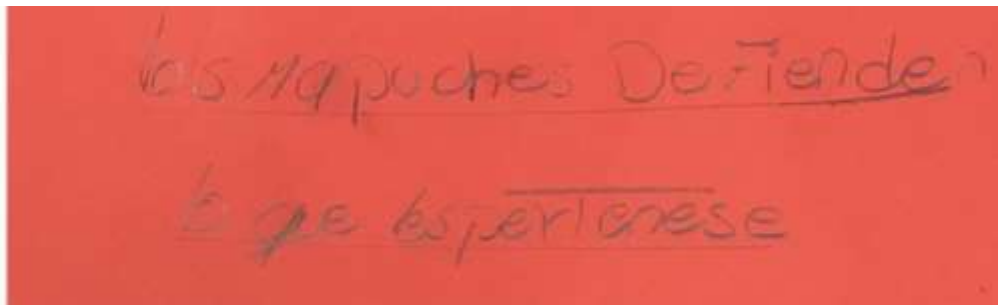 los mapuches Defienden
lo que lespertenese